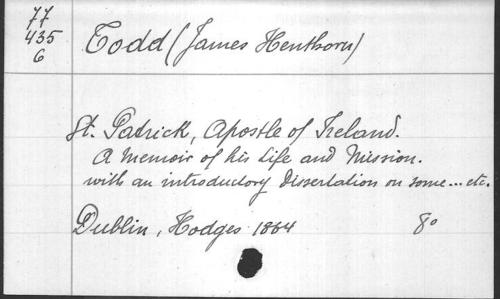 77
435
6
Todd (James Henthorn)
St. Patrick, Apostle of Ireland.
A Memoir of his Life and Mission.
with an introductory Dissertation on some... etc.
Dublin, Hodges 1864 8°